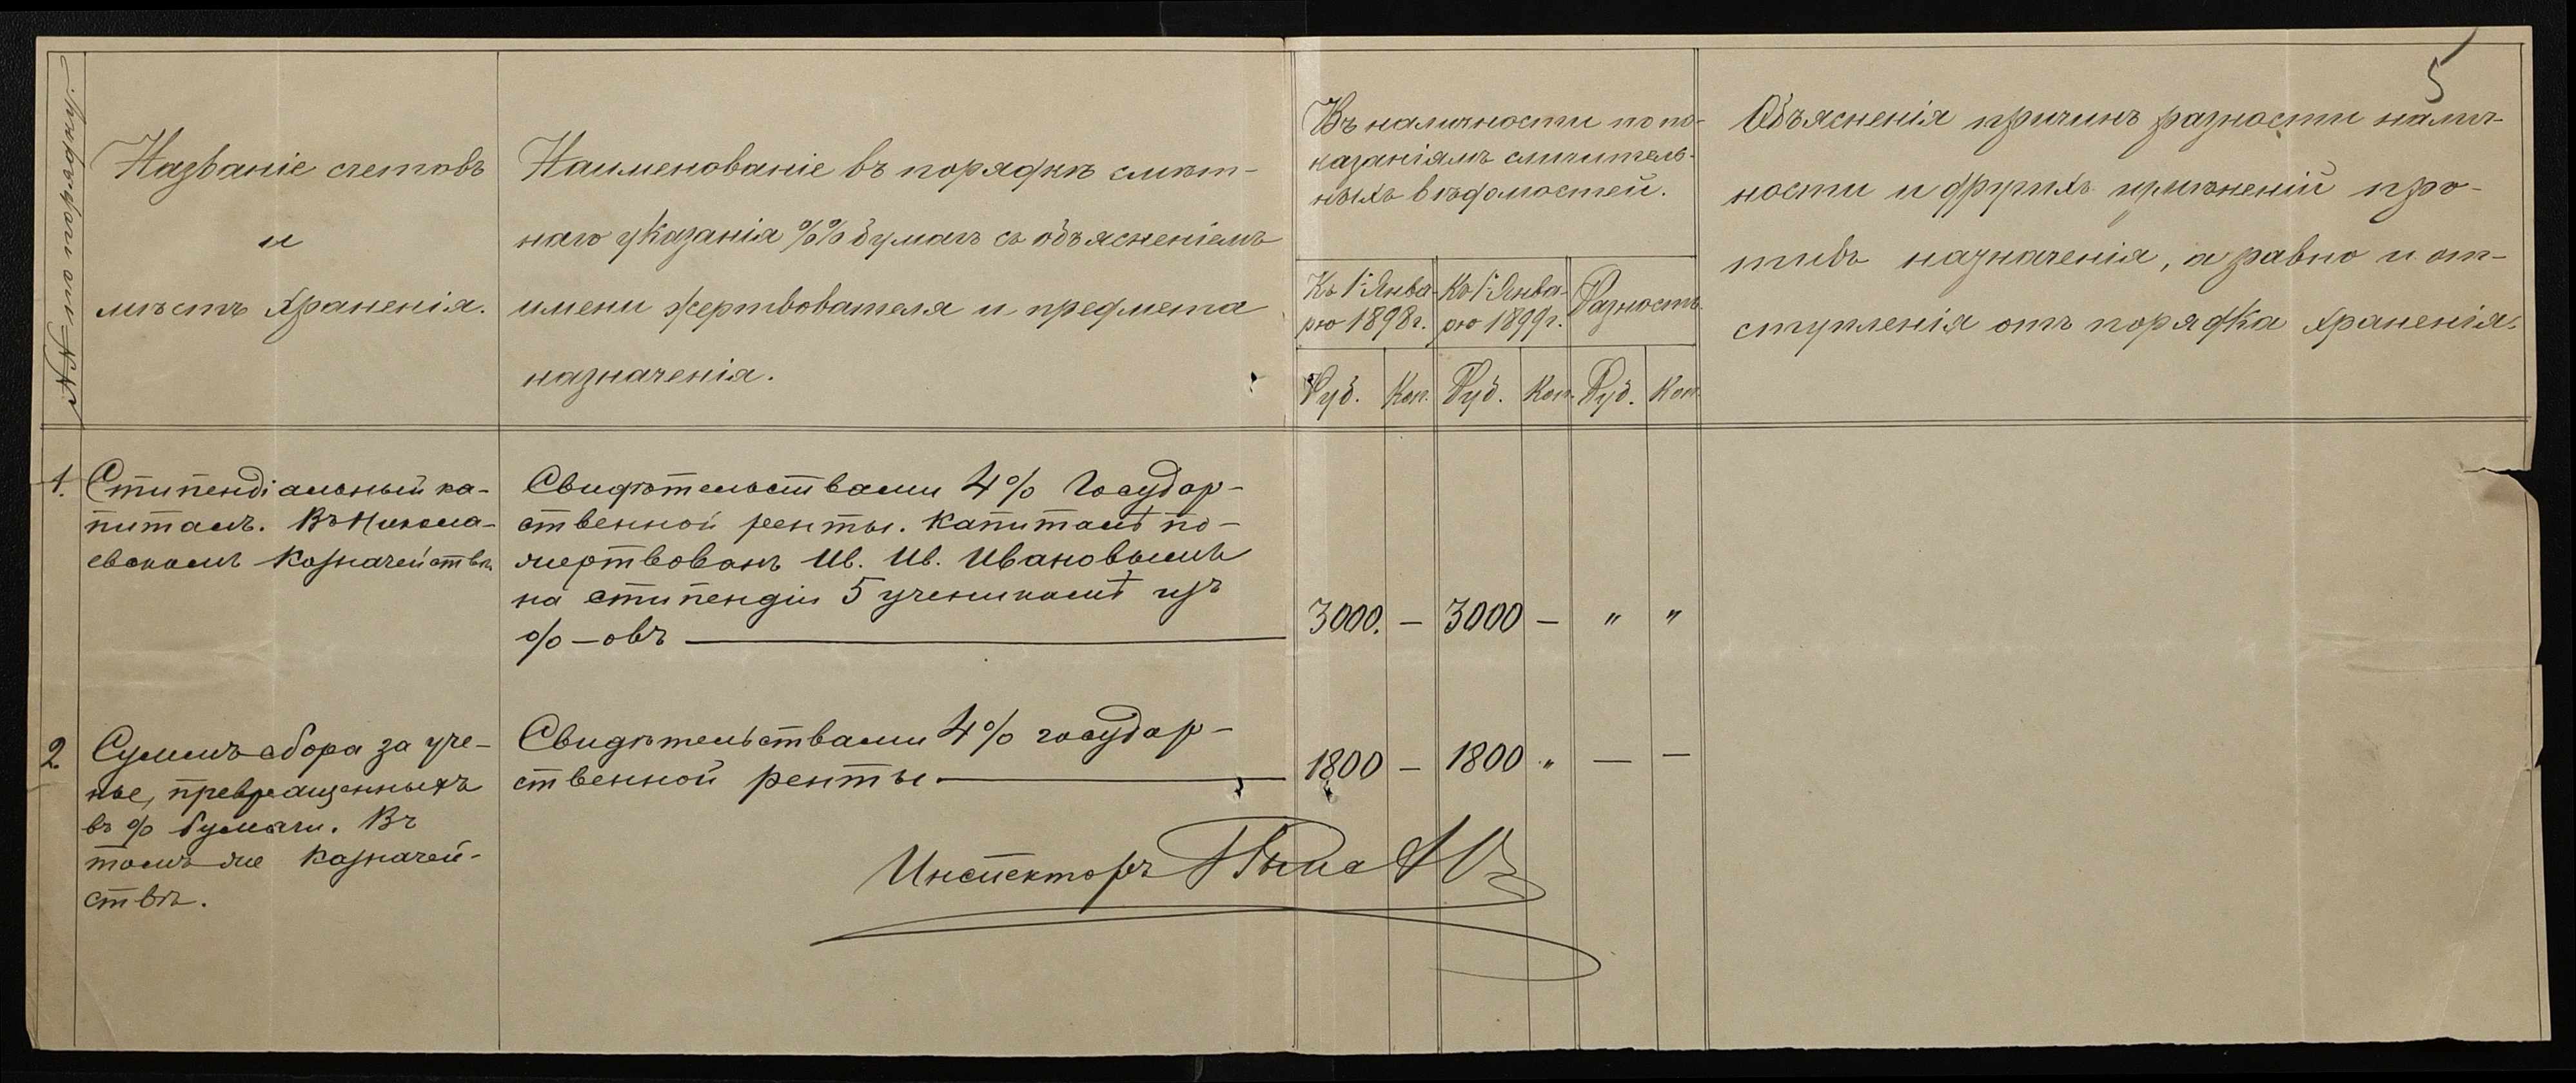 5
№№ по порядку.
Названіе счетовъ
и
мѣстъ храненія.
Наименованіе въ порядкѣ смѣт-
наго указанія %% бумагъ съ объясненіемъ
имени жертвователя и предмета
назначенія.
Въ наличности по по-
казаніямъ сличитель-
ныхъ вѣдомостей.
Къ 1 Янва-
рю 1898 г.
Къ 1 Янва-
рю 1899 г.
Разность
Руб. Коп. Руб. Коп. Руб. Коп.
Объясненія причинъ разности налич-
ности и другихъ измѣненій про-
тивъ назначенія, а равно и от-
ступленія отъ порядка храненія.
1. Стипендіальный ка-
питалъ. Въ Никола-
евскомъ Казначействѣ
Свидѣтельствами 4% Государ-
ственной ренты. Капиталъ по-
жертвованъ Ив. Ив. Ивановымъ
на стипендіи 5 ученикамъ изъ
%-овъ — 3000. — 3000 — " "
2. Суммъ сбора за уче-
нье, превращенныхъ
въ % бумаги. Въ
томъ же Казначей-
ствѣ.
Свидѣтельствами 4% государ-
ственной ренты — 1800 — 1800 " — —
Инспекторъ